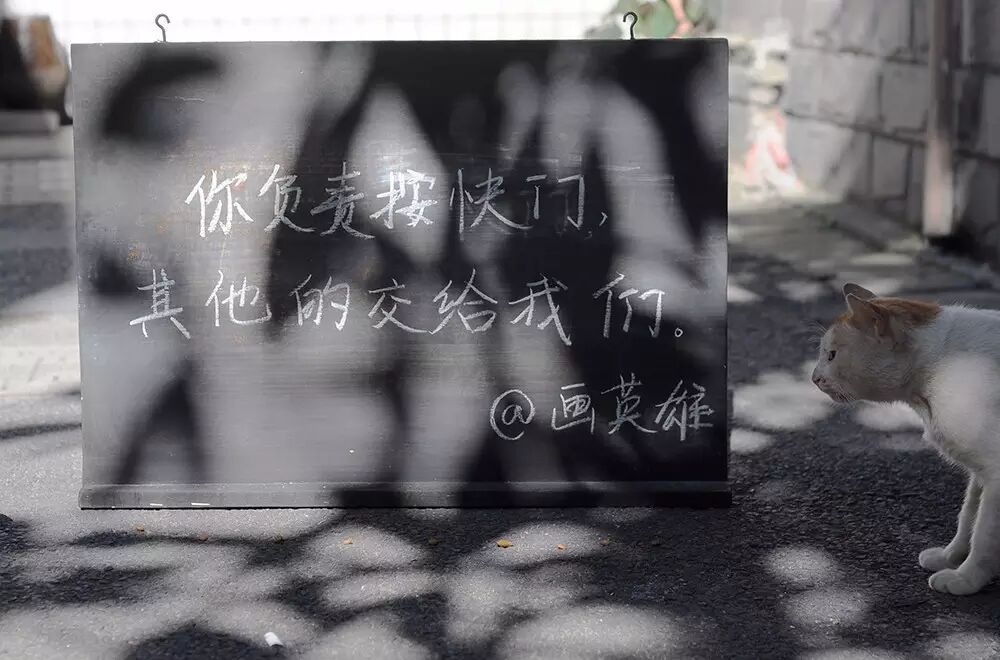 你负责按快门,
其他的交给我们。
@画英雄